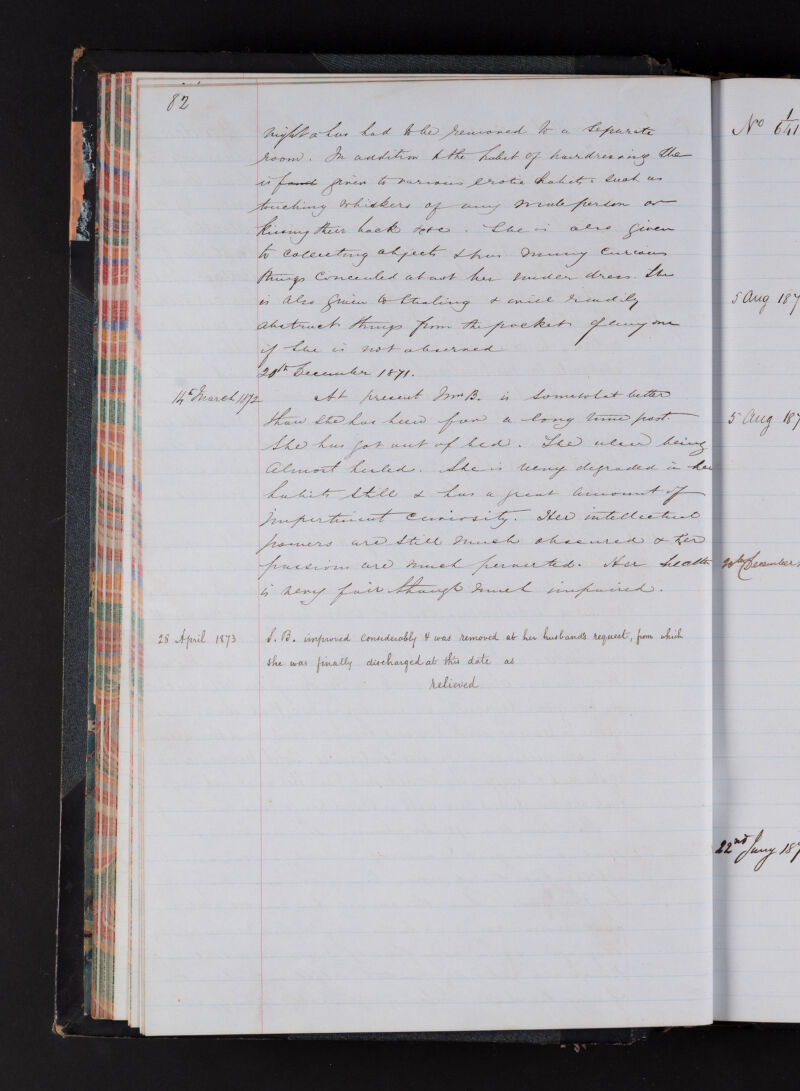 82
night & has had to be removed to a separate
room. In addition to the habit of hairdressing she
is fond given to various erotic habits. such as
touching whiskers of any male person or
kissing their back &c. She is also given
to collecting objects & has many curious
things concealed about her under dress. She
is also given to stealing & will readily
abstract things from the pockets of any one
if she is not observed
20th December 1871.
14th March 1872 At present Mrs B. is somewhat better
than she has been for a long time past.
She has got out of bed. The ulcer being
almost healed. She is very degraded in her
habits still & has a great amount of
impertinent curiosity. Her intellectual
powers are still much obscured & her
passions are much perverted. Her health
is very fair though much impaired.
28 April 1873 J. B. improved considerably & was removed at her husbands request, from which
she was finally discharged at this date as
relieved
No 1/641
5 Aug 187
5 Aug 187
20th December
22nd Jany 187